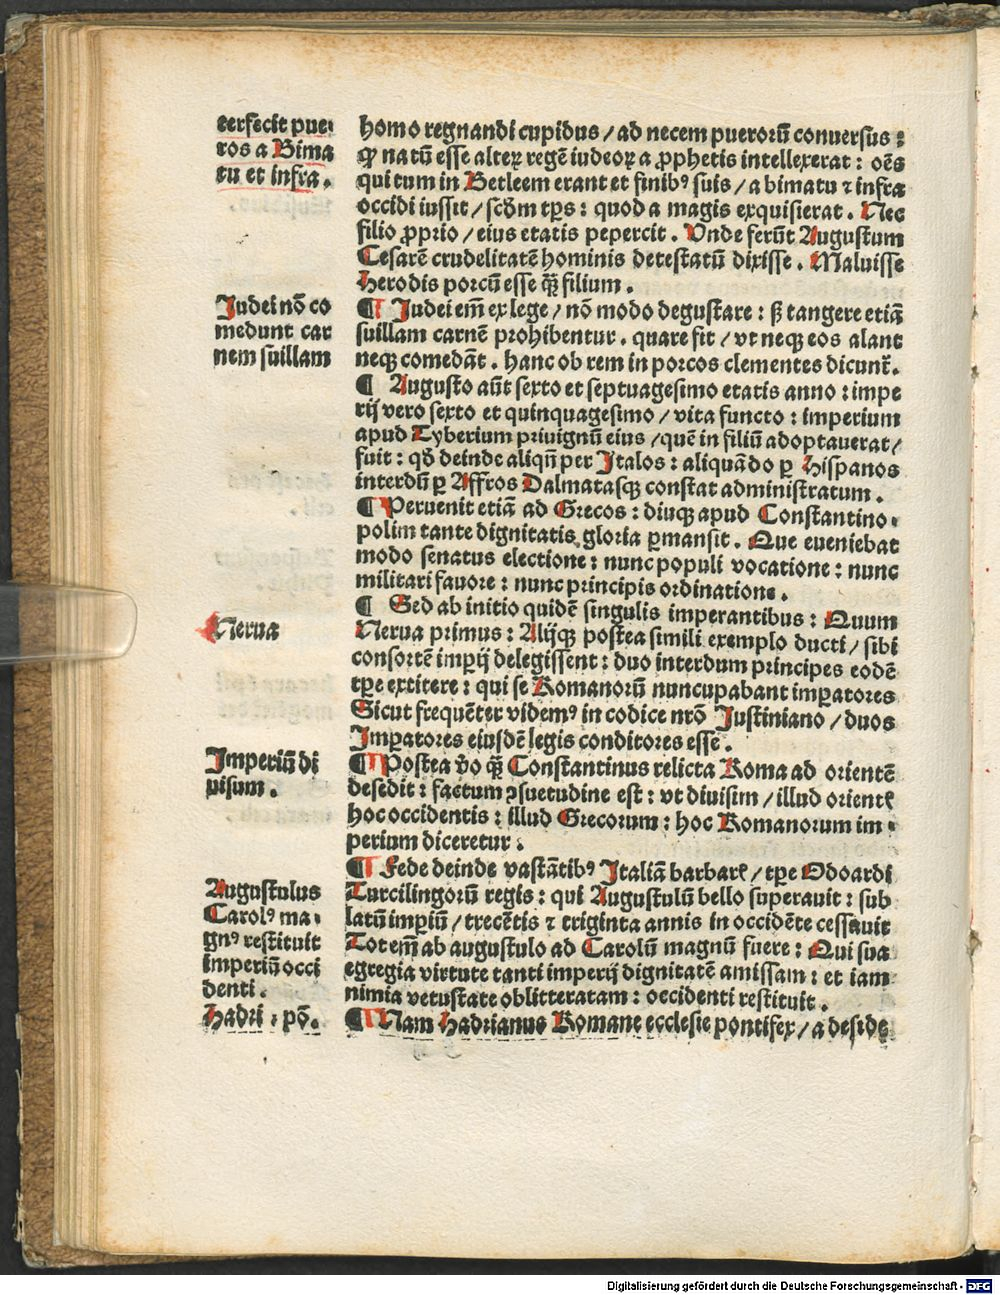 terfecit pue⸗
ros a Bima
tu et infra.
homo regnandi cupidus / ad necem puerorū conuersus :
ꝙ natū esse alteꝝ regē iudeoꝝ a ꝓphetis intellexerat : oēs
qui tum in Betleem erant et finibꝰ suis / a bimatu ⁊ infra
occidi iussit / scd̄m tp̄s : quod a magis exquisierat . Nec
filio ꝓprio / eius etatis pepercit . Unde ferūt Augustum
Cesarē crudelitatē hominis detestatū dixisse . Maluisse
Herodis porcū esse q̄ȝ filium .
Judei nō co
medunt car
nem suillam
¶ Judei em̄ ex lege / nō modo degustare : sȝ tangere etiā
suillam carnē prohibentur . quare fit / vt neqȝ eos alant
neqȝ comedāt . hanc ob rem in porcos clementes dicunt̄.
¶ Augusto aūt sexto et septuagesimo etatis anno : impe
rij vero sexto et quinquagesimo / vita functo : imperium
apud Tyberium priuignū eius / quē in filiū adoptauerat /
fuit : qd̄ deinde aliqn̄ per Italos : aliquādo ꝑ Hispanos
interdū ꝑ Affros Dalmatasqȝ constat administratum .
¶ Peruenit etiā ad Grecos : diuqȝ apud Constantino⸗
polim tante dignitatis gloria ꝑmansit . Que eueniebat
modo senatus electione : nunc populi vocatione : nunc
militari fauore : nunc principis ordinatione .
¶ Sed ab initio quidē singulis imperantibus : Quum
Nerua
Nerua primus : Alijqȝ postea simili exemplo ducti / sibi
consortē imp̄ij delegissent : duo interdum principes eodē
tp̄e extitere : qui se Romanorū nuncupabant imꝑatores
Sicut frequēter videmꝰ in codice nr̄o Justiniano / duos
Imꝑatores eiusdē legis conditores esse .
Imperiū di
uisum .
¶ Postea v̄o q̄ȝ Constantinus relicta Roma ad orientē
desedit : factum ꝯsuetudine est : vt diuisim / illud orientꝭ
hoc occidentis : illud Grecorum : hoc Romanorum im⸗
perium diceretur .
¶ Fede deinde vastātibꝰ Italiā barbarꝭ / tp̄e Odoardi
Augustulus
Carolꝰ ma⸗
gnꝰ restituit
imperiū occi
denti .
Turcilingorū regis : qui Augustulū bello superauit : sub
latū imp̄iū / trecētis ⁊ triginta annis in occidēte cessauit
Tot em̄ ab augustulo ad Carolū magnū fuere : Qui sua
egregia virtute tanti imperij dignitatē amissam : et iam
nimia vetustate oblitteratam : occidenti restituit .
Hadri . pō.
¶ Nam Hadrianus Romane ecclesie pontifex / a deside
Digitalisierung gefördert durch die Deutsche Forschungsgemeinschaft - DFG